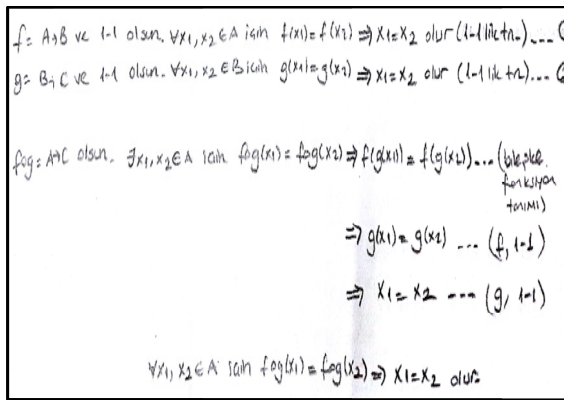 f: A→B ve 1-1 olsun. ∀x₁, x₂ ∈ A için f(x₁) = f(x₂) ⇒ x₁ = x₂ olur (1-1 lik tn.) ....
g: B→C ve 1-1 olsun. ∀x₁, x₂ ∈ B için g(x₁) = g(x₂) ⇒ x₁ = x₂ olur (1-1 lik tn.) ....
fog: A→C olsun. ∃x₁, x₂ ∈ A için fog(x₁) = fog(x₂) ⇒ f(g(x₁)) = f(g(x₂)) ... (bileşke
fonksiyon
tanımı)
⇒ g(x₁) = g(x₂) ... (f, 1-1)
⇒ x₁ = x₂ .... (g, 1-1)
∀x₁, x₂ ∈ A için fog(x₁) = fog(x₂) ⇒ x₁ = x₂ olur.